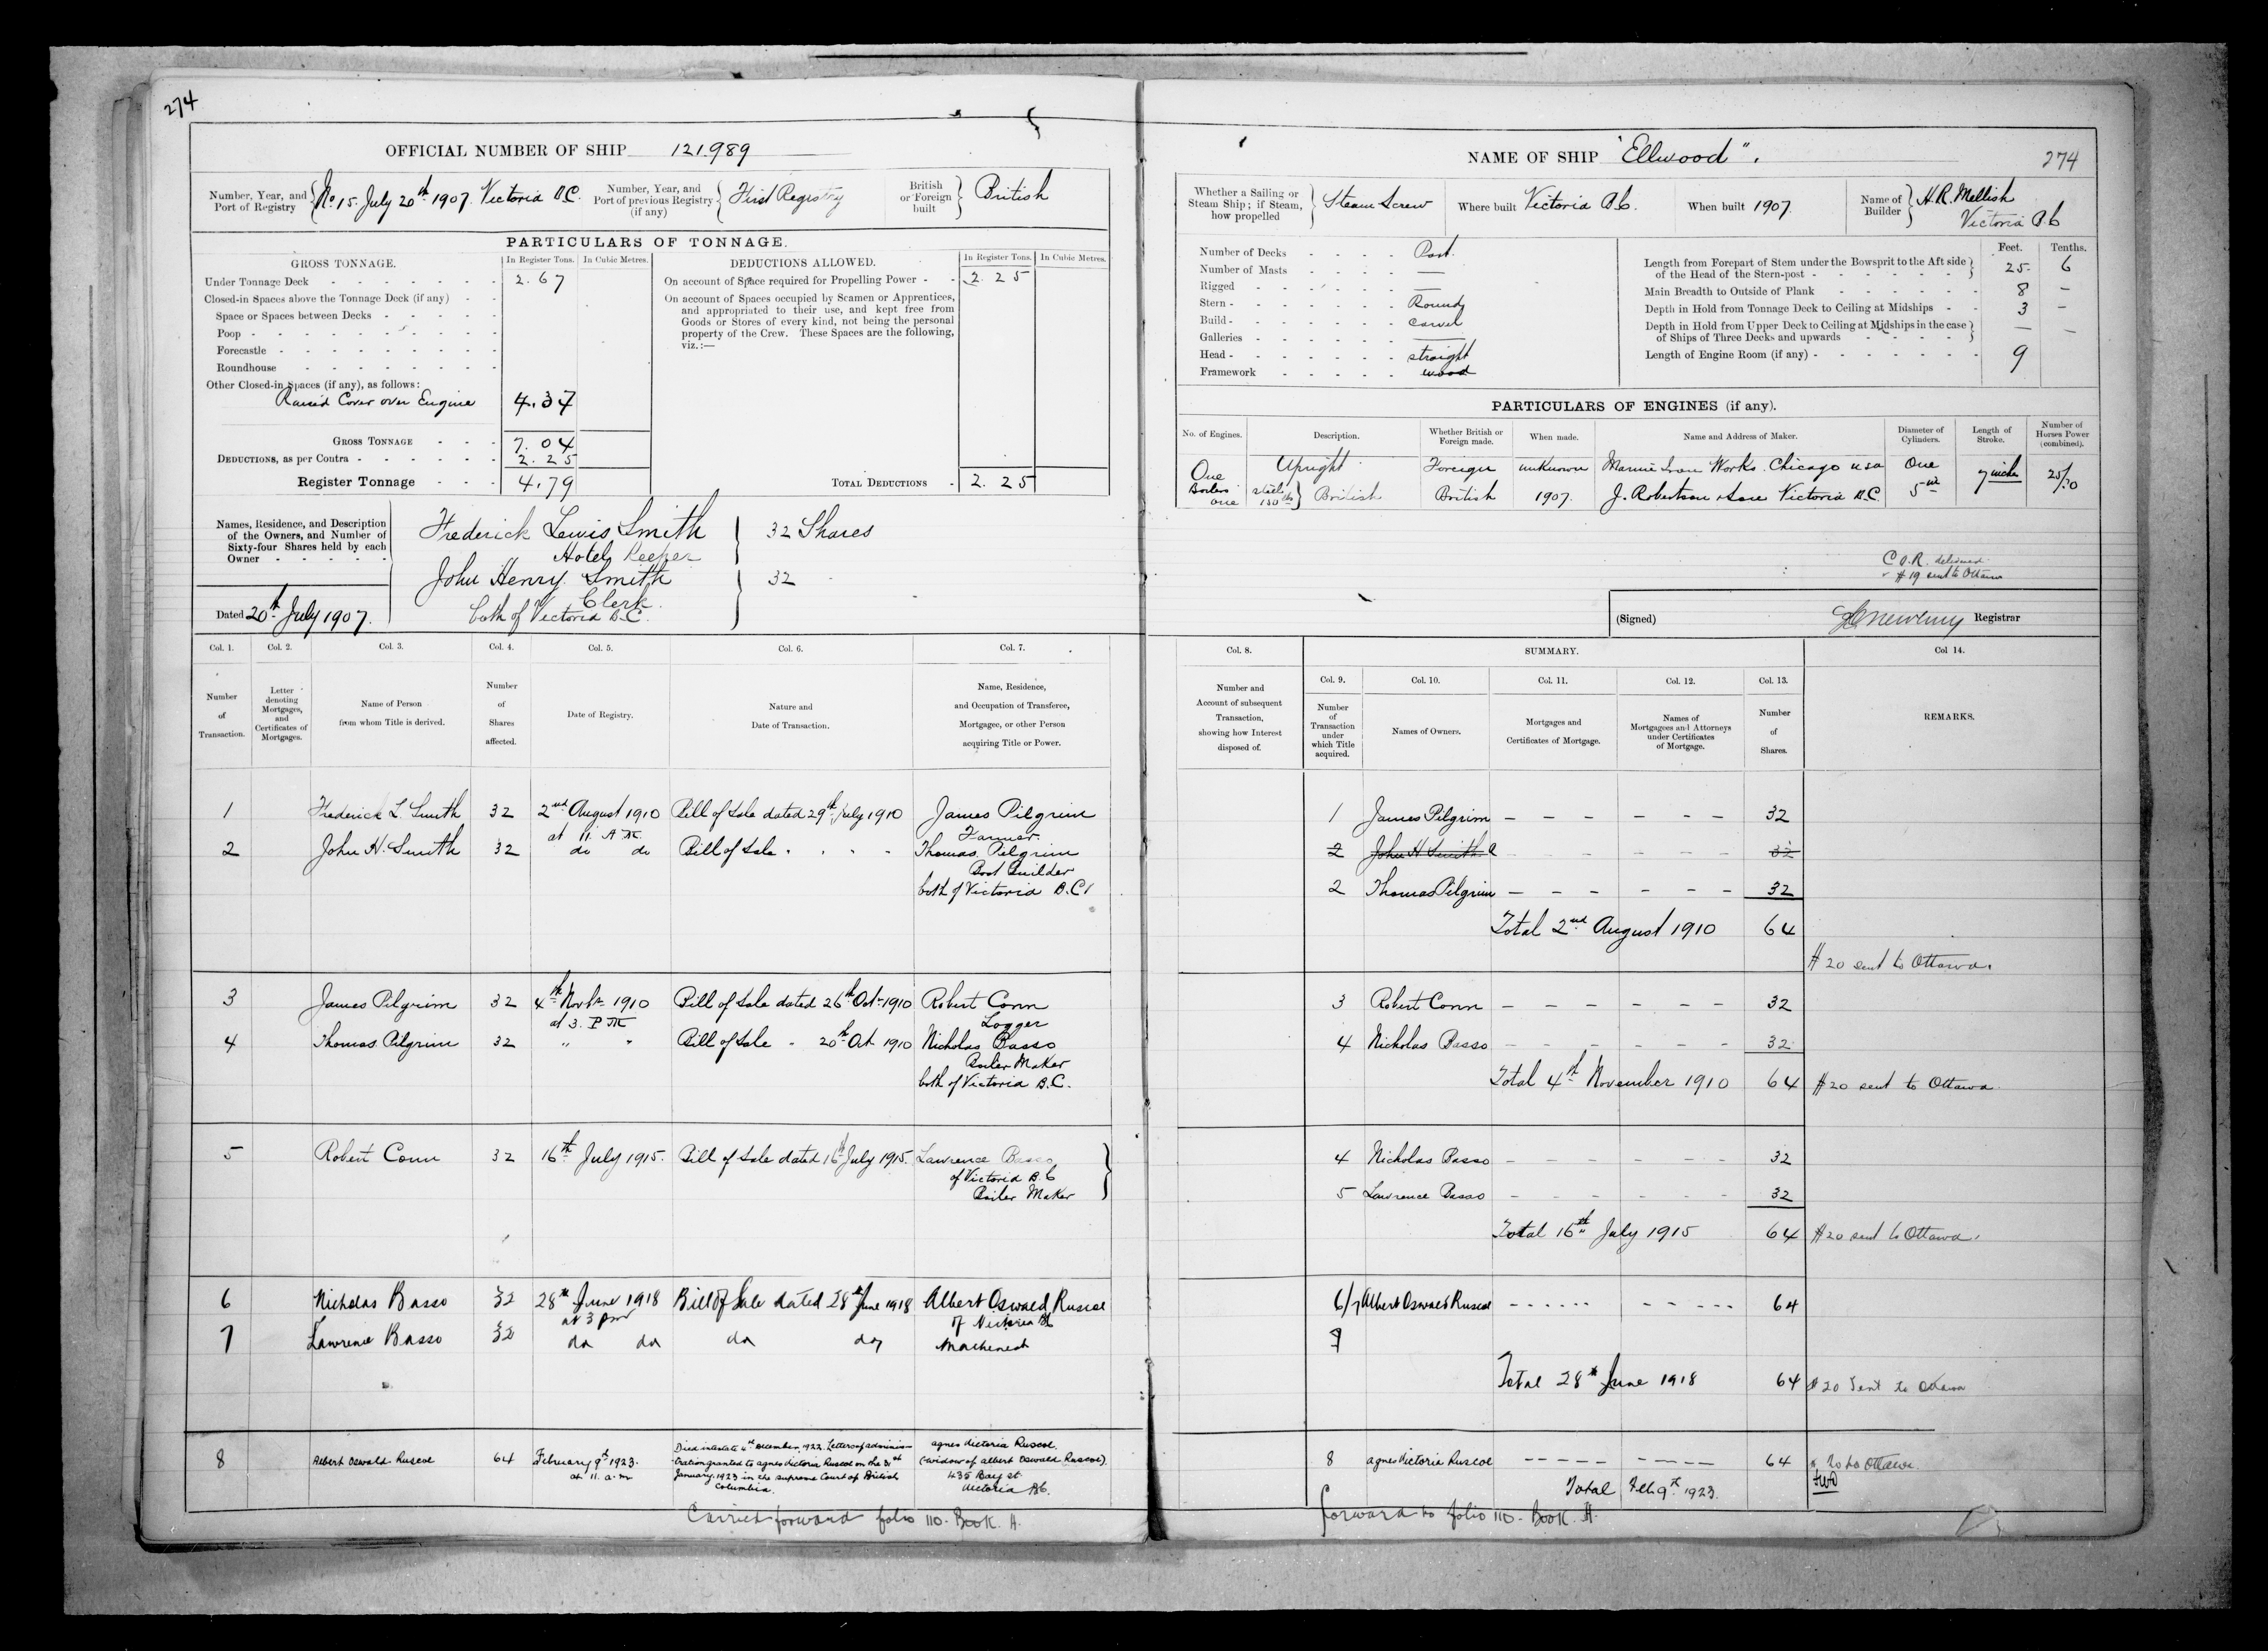 274
OFFICIAL NUMBER OF SHIP 121.989
Number, Year, and Port of Registry No 15. July 20th 1907. Victoria B.C.
Number, Year, and Port of previous Registry (if any) First Registry
British or Foreign built British
PARTICULARS OF TONNAGE.
GROSS TONNAGE. In Register Tons. In Cubic Metres.
DEDUCTIONS ALLOWED. In Register Tons. In Cubic Metres.
Under Tonnage Deck 2.67
Closed-in Spaces above the Tonnage Deck (if any)
Space or Spaces between Decks
Poop
Forecastle
Roundhouse
Other Closed-in Spaces (if any), as follows:
Raised Cover over Engine 4.37
GROSS TONNAGE 7.04
DEDUCTIONS, as per Contra 2.25
Register Tonnage 4.79
On account of Space required for Propelling Power 2.25
On account of Spaces occupied by Seamen or Apprentices,
and appropriated to their use, and kept free from
Goods or Stores of every kind, not being the personal
property of the Crew. These Spaces are the following,
viz.:—
TOTAL DEDUCTIONS 2.25
Names, Residence, and Description
of the Owners, and Number of
Sixty-four Shares held by each
Owner
Frederick Lewis Smith 32 Shares
Hotel Keeper
John Henry Smith 32
Clerk
both of Victoria B.C.
Dated 20th July 1907.
NAME OF SHIP "Ellwood".
274
Whether a Sailing or Steam Ship; if Steam, how propelled Steam Screw
Where built Victoria B.C.
When built 1907.
Name of Builder H.R. Mellish
Victoria B.C
Number of Decks Part.
Number of Masts —
Rigged —
Stern Round
Build Carvel
Galleries —
Head straight
Framework wood
Feet. Tenths.
Length from Forepart of Stem under the Bowsprit to the Aft side
of the Head of the Stern-post 25 6
Main Breadth to Outside of Plank 8 —
Depth in Hold from Tonnage Deck to Ceiling at Midships 3 —
Depth in Hold from Upper Deck to Ceiling at Midships in the case
of Ships of Three Decks and upwards — —
Length of Engine Room (if any) 9
PARTICULARS OF ENGINES (if any).
No. of Engines. Description. Whether British or Foreign made. When made. Name and Address of Maker. Diameter of Cylinders. Length of Stroke. Number of Horses Power (combined).
One Upright Foreign unknown Marine Iron Works. Chicago USA One 7 inches
Boilers one steel British British 1907. J. Robertson Victoria B.C.
C.O.R. delivered
#19 sent to Ottawa
(Signed) Registrar
Col. 1. Col. 2. Col. 3. Col. 4. Col. 5. Col. 6. Col. 7.
Number of Transaction.
Letter denoting Mortgages, and Certificates of Mortgages.
Name of Person from whom Title is derived.
Number of Shares affected.
Date of Registry.
Nature and Date of Transaction.
Name, Residence, and Occupation of Transferee, Mortgagee, or other Person acquiring Title or Power.
Col. 8. SUMMARY. Col 14.
Number and Account of subsequent Transaction, showing how Interest disposed of.
Col. 9. Col. 10. Col. 11. Col. 12. Col. 13.
Number of Transaction under which Title acquired.
Names of Owners.
Mortgages and Certificates of Mortgage.
Names of Mortgagees and Attorneys under Certificates of Mortgage.
Number of Shares.
REMARKS.
1 Frederick L. Smith 32 2nd August 1910 Bill of Sale dated 29th July 1910 James Pilgrim
at 11. A.M. Farmer
2 John H. Smith 32 do do Bill of Sale " " " Thomas Pilgrim
Boat Builder
both of Victoria B.C.
1 James Pilgrim 32
2 John H Smith 32
2 Thomas Pilgrim 32
Total 2nd August 1910 64
#20 sent to Ottawa.
3 James Pilgrim 32 4th Novbr 1910 Bill of Sale dated 26th Oct 1910 Robert Conn
at 3. P.M. Logger
4 Thomas Pilgrim 32 " " Bill of Sale " 20th Oct 1910 Nicholas Basso
Boiler Maker
both of Victoria B.C.
3 Robert Conn 32
4 Nicholas Basso 32
Total 4th November 1910 64 #20 sent to Ottawa
5 Robert Conn 32 16th July 1915. Bill of Sale dated 16th July 1915. Lawrence Basso
of Victoria B.C
Boiler Maker
4 Nicholas Basso 32
5 Lawrence Basso 32
Total 16th July 1915 64 #20 sent to Ottawa.
6 Nicholas Basso 32 28th June 1918 Bill of Sale dated 28th June 1918 Albert Oswald Ruscoe
at 3 pm of Victoria BC
7 Lawrence Basso 32 do do do do Machinest
6/7 Albert Oswald Ruscoe 64
7
Total 28th June 1918 64 #20 Sent to Ottawa
8 Albert Oswald Ruscoe 64 February 9th 1923. at 11. a.m
Died intestate 4th December, 1922. Letters of adminis-
tration granted to Agnes Victoria Ruscoe on the 31st
January 1923 in the supreme Court of British
Columbia.
Agnes Victoria Ruscoe
(widow of Albert Oswald Ruscoe).
435 Bay st
Victoria BC.
8 Agnes Victoria Ruscoe 64 # 20 to Ottawa.
Total Feb 9th 1923.
Carried forward folio 110. Book. A.
forward to folio 110. Book. A